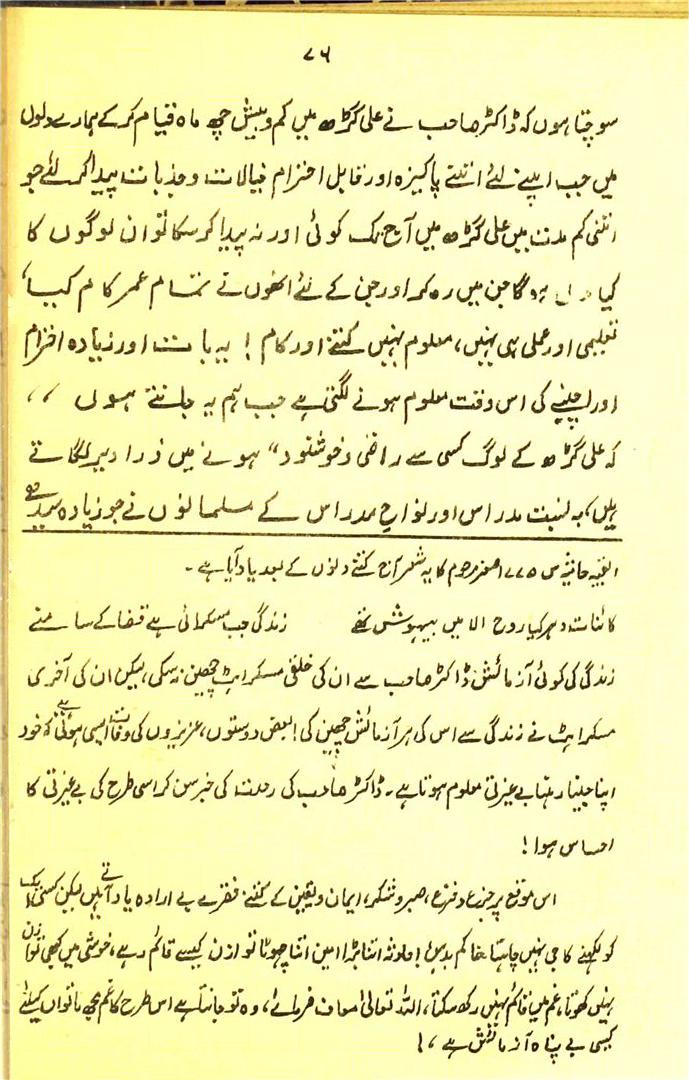 ۷۶
سوچتا ہوں کہ ڈاکٹر صاحب نے علی گڑھ میں کم و بیش چھ ماہ قیام کر کے ہمارے دلوں
میں جب اپنے لئے اتنے پاکیزہ اور قابل احترام خیالات و جذبات پیدا کر لئے جو
اتنی کم مدت میں علی گڑھ میں آج تک کوئی اور نہ پیدا کر سکا تو ان لوگوں کا
کیا حال ہو گا جن میں رہ کر اور جن کے لئے انھوں نے تمام عمر کام کیا،
تعلیمی اور عملی ہی نہیں، معلوم نہیں کتنے اور کام! یہ بات اور زیادہ احترام
اور اچنبے کی اس وقت معلوم ہونے لگتی ہے جب ہم یہ جانتے ہوں ،،
کہ علی گڑھ کے لوگ کسی سے راضی و خوشنود" ہونے میں ذرا دیر لگاتے
ہیں، بہ نسبت مدراس اور نواح مدراس کے مسلمانوں نے جو زیادہ سیدھے
بقیہ حاشیہ ص ۷۷۵ اصغر مرحوم کا یہ شعر آج کتنے دنوں کے بعد یاد آیا ہے ۔
کائنات دہر کیا روح الا میں بیہوش تھے زندگی جب مسکرائی ہے قضا کے سامنے
زندگی کی کوئی آزمائش ڈاکٹر صاحب سے ان کی خلقی مسکراہٹ چھین نہ سکی، لیکن ان کی آخری
مسکراہٹ نے زندگی سے اس کی ہر آزمائش چھین کی! بعض دوستوں، عزیزوں کی وفات ایسی ہوئی ہے کہ خود
اپنا جیتا رہنا بے غیرتی معلوم ہوتا ہے ۔ ڈاکٹر صاحب کی رحلت کی خبر سن کر اسی طرح کی بے غیرتی کا
احساس ہوا!
اس موقع پر جزع و فزع، صبر و شکر، ایمان و یقین کے کتنے فقرے بے ارادہ یاد آتے ہیں لیکن کسی ایک
کو لکھنے کا جی نہیں چاہتا خاکم بدہن! حادثہ اتنا بڑا امین اتنا چھوٹا توازن کیسے قائم رہے، خوشی میں کبھی توازن
نہیں کھوتا، غم میں قائم نہیں رکھ سکتا، اللہ تعالیٰ معاف فرمائے، وہ تو جانتا ہے اس طرح کا غم مجھ ناتواں کیلئے
کیسی بے پناہ آزمائش ہے،!